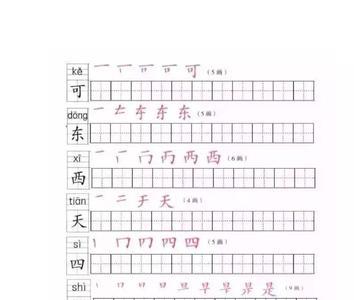 kě 一 丆 可 可 可 (5画)
可
dōng 一 𠂇 东 东 东 (5画)
东
xī 一 丆 襾 襾 西 西 (6画)
西
tiān 一 二 于 天 (4画)
天
sì 丨 冂 四 四 四 (5画)
四
shì 丨 冂 日 日 旦 早 早 是 是 (9画)